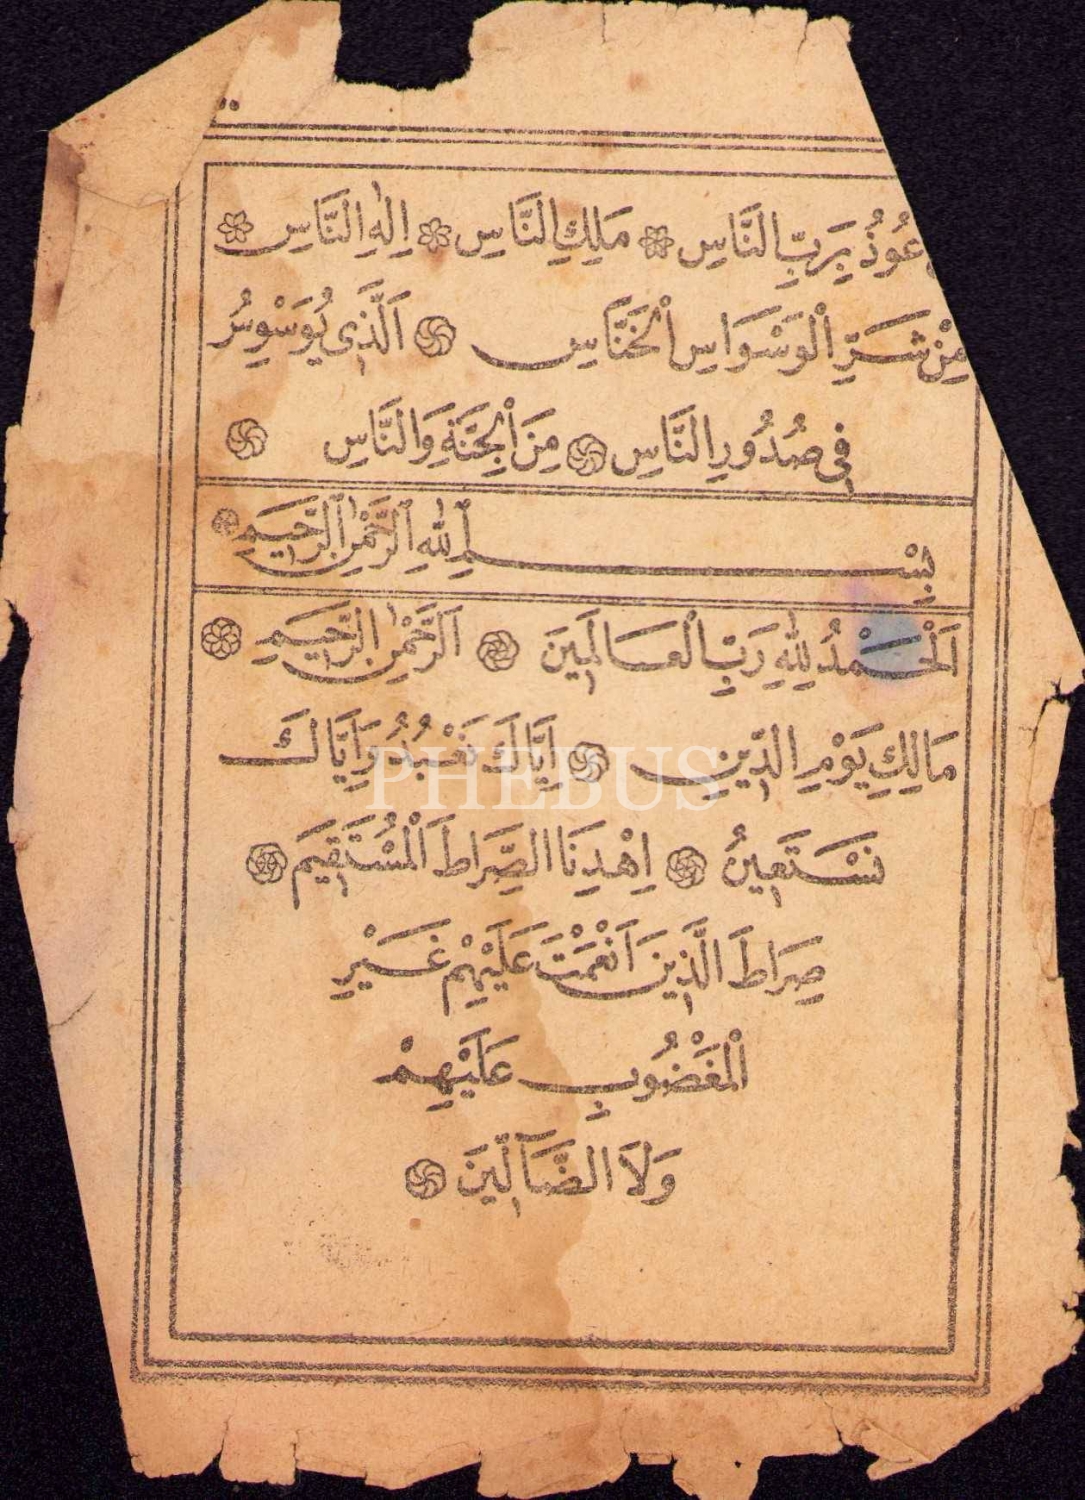 عُوذُ بِرَبِّ النَّاسِ مَلِكِ النَّاسِ اِلٰهِ النَّاسِ
مِنْ شَرِّ الْوَسْوَاسِ الْخَنَّاسِ اَلَّذِى يُوَسْوِسُ
فِى صُدُورِ النَّاسِ مِنَ الْجِنَّةِ وَالنَّاسِ
بِسْمِ اللهِ الرَّحْمٰنِ الرَّحِيمِ
اَلْحَمْدُ لِلّٰهِ رَبِّ الْعَالَمِينَ اَلرَّحْمٰنِ الرَّحِيمِ
مَالِكِ يَوْمِ الدِّينِ اِيَّاكَ نَعْبُدُ وَاِيَّاكَ
PHEBUS
نَسْتَعِينُ اِهْدِنَا الصِّرَاطَ الْمُسْتَقِيمَ
صِرَاطَ الَّذِينَ اَنْعَمْتَ عَلَيْهِمْ غَيْرِ
الْمَغْضُوبِ عَلَيْهِمْ
وَلاَ الضَّآلِّينَ